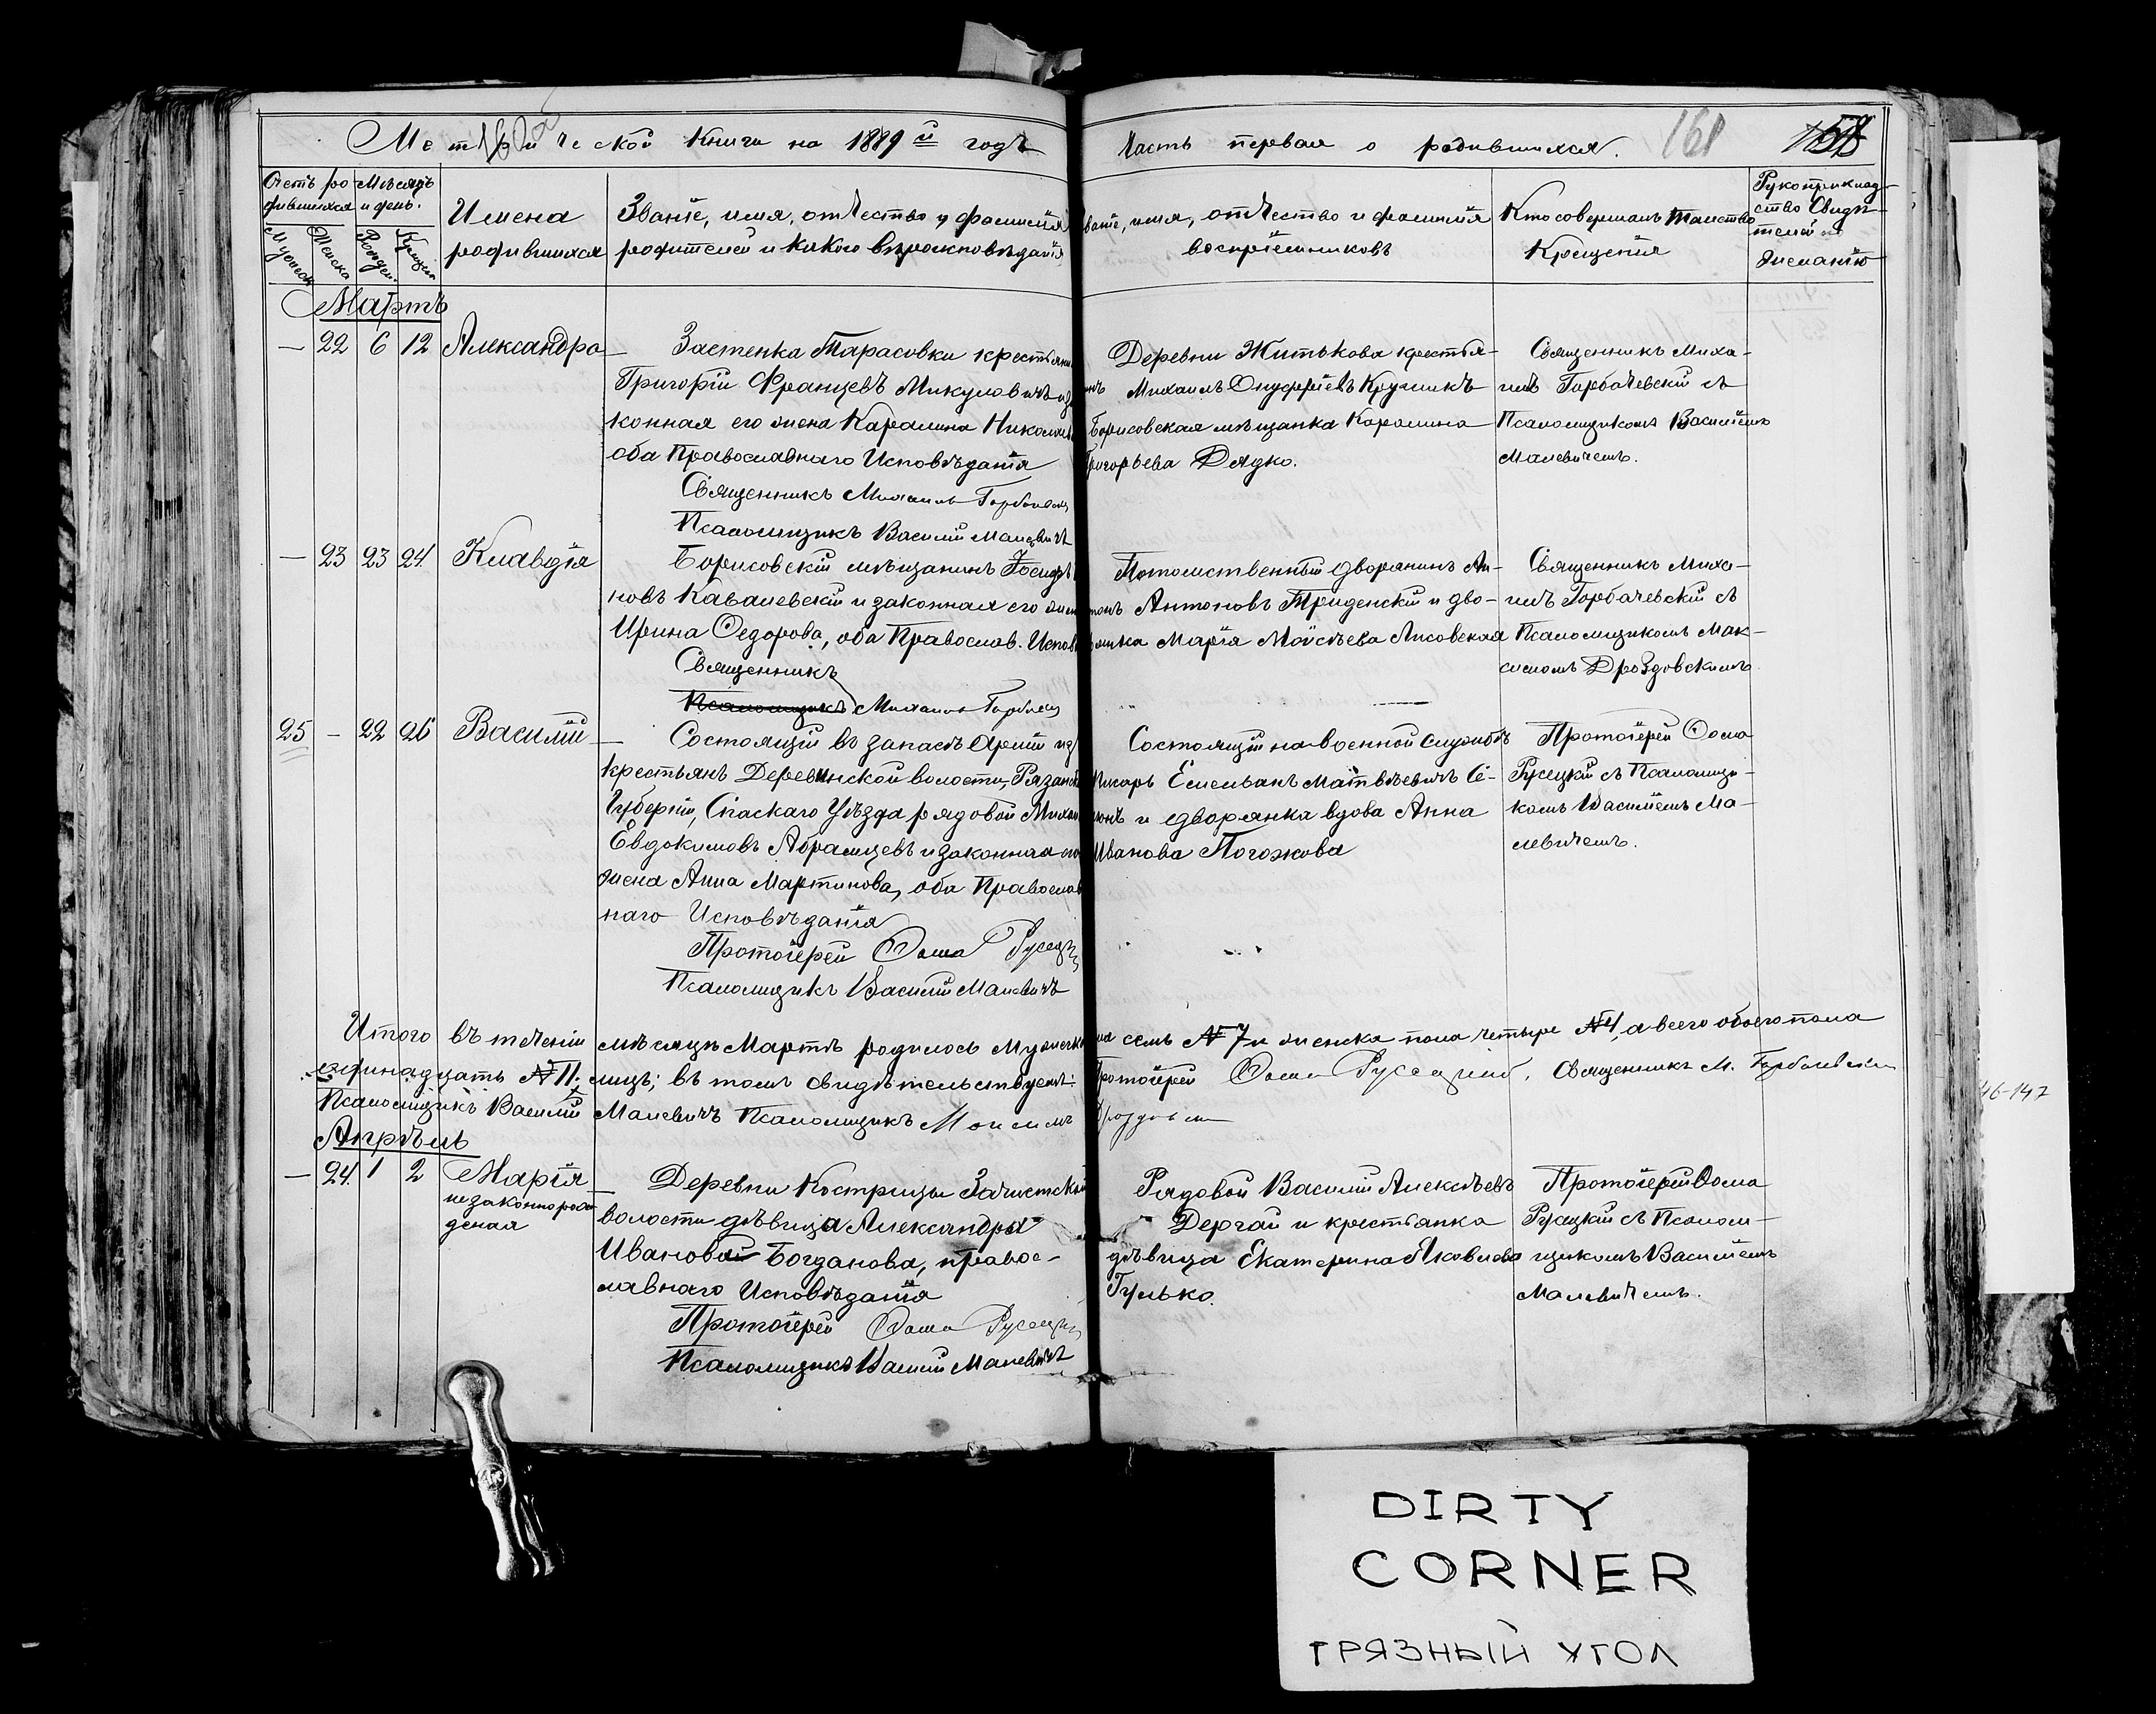 Метрической книги на 1889й годъ
Часть первая о родившихся.
168
Счетъ ро-
дившихся
Мѣсяцъ
и день.
Имена
родившихся
Званіе, имя, отчество и фамилія
родителей и какого вѣроисповѣданія
Званіе, имя, отчество и фамилія
воспріемниковъ
Кто совершалъ таинство
Крещенія
Рукоприклад-
ство свидѣ-
телей по
желанію
Мартъ
— 22 6 12 Александра
Застенка Тарасовки крестьянинъ
Григорій Францевъ Микуловичъ и за
конная его жена Каралина Николаева
оба Православнаго Исповѣданія
Священникъ Михаилъ Горбачевскій
Псаломщикъ Василій Малевичъ
Деревни Житькова крестья-
нинъ Михаилъ Онуфріевъ Кружикъ
Борисовская мѣщанка Каролина
Григорьева Дядко.
Священникъ Миха-
илъ Горбачевскій съ
Псаломщикомъ Василіемъ
Малевичемъ.
— 23 23 24 Клавдія
Борисовскій мѣщанинъ Іосифъ
новъ Кавалевскій и законная его жена
Ирина Ѳедорова, оба Православ. Испов
Священникъ
Псаломщикъ Михаилъ Горбачевскій
Потомственный дворянинъ Ан-
тонъ Антоновъ Триденскій и дво-
рянка Марія Моисѣева Лисовская
Священникъ Миха-
илъ Горбачевскій съ
Псаломщикомъ Мак-
симомъ Дроздовскимъ
25 — 22 26 Василій
Состоящій въ запасѣ Арміи изъ
крестьянъ Деревинской волости, Рязанской
Губерніи, Спаскаго Уѣзда рядовой Михаилъ
Евдокимовъ Абрамцевъ и законная его
жена Анна Мартинова, оба Православ
наго Исповѣданія
Протоіерей Ѳома Русецкій
Псаломщикъ Василій Малевичъ
Состоящій на военной службѣ
Писарь Емельянъ Матвѣевичъ Се-
монъ и дворянка вдова Анна
Иванова Погожова
Протоіерей Ѳома
Русецкій съ Псаломщи-
комъ Василіемъ Ма-
левичемъ.
Итого въ теченіи мѣсяца Мартѣ родилось Мужеска пола семь №7 и женска пола четыре №4, а всего обоего пола
единадцать №11. лицъ; въ томъ свидѣтельствуемъ: Протоіерей Ѳома Русецкій, Священникъ М. Горбачевскій
Псаломщикъ Василій Малевичъ Псаломщикъ Максимъ Дроздовскій
46-147
Апрѣль
— 24. 1 2 Марія
незаконнорож
деная
Деревни Кострицы Зачистской
волости дѣвица Александра
Иванова Богданова, правос-
лавнаго Исповѣданія
Протоіерей Ѳома Русецкій
Псаломщикъ Василій Малевичъ
Рядовой Василій Алексѣевъ
Дергай и крестьянка
дѣвица Екатерина Яковлева
Гулько.
Протоіерей Ѳома
Русецкій съ Псалом-
щикомъ Василіемъ
Малевичемъ.
DIRTY
CORNER
ГРЯЗНЫЙ УГОЛ